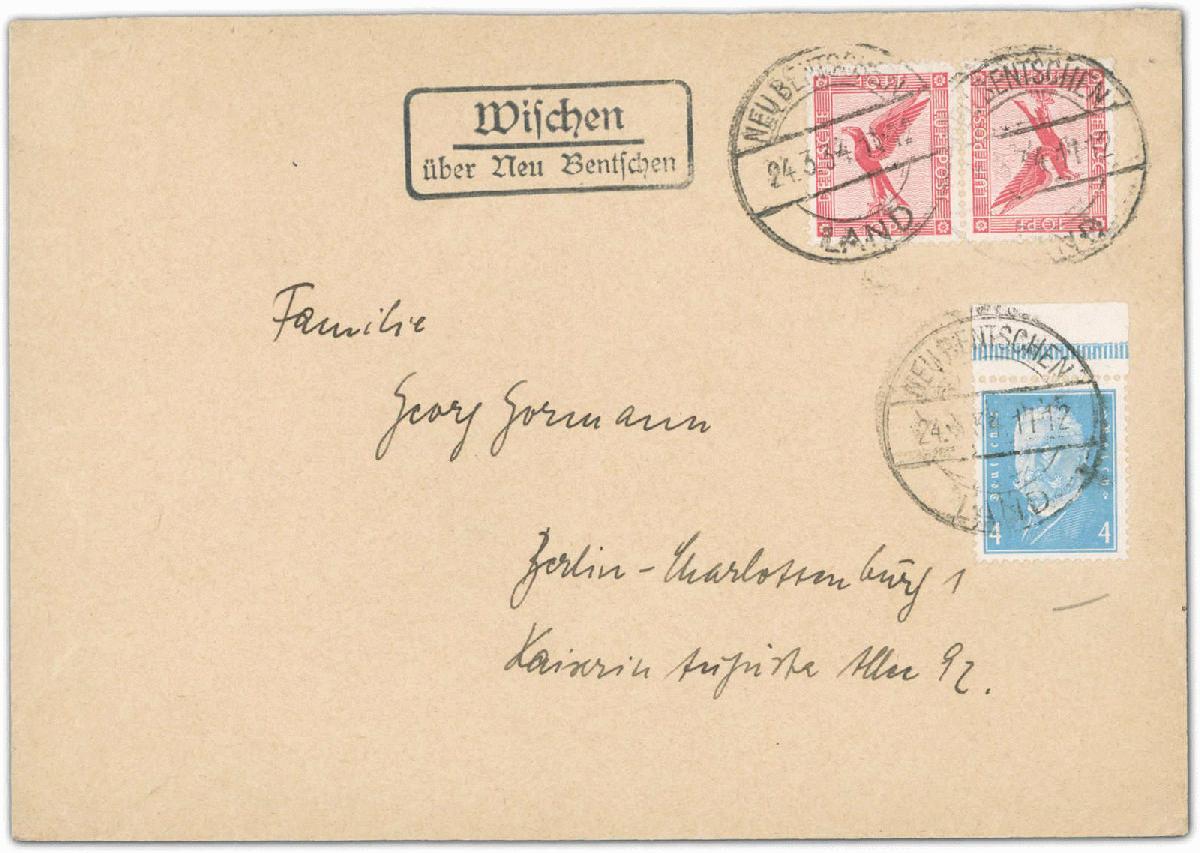 Wiſchen
über Neu Bentſchen
NEU BENTSCHEN
24.3.34. 11-12
LAND
10 PF
DEUTSCHE FLUGPOST
BENTSCHEN
11-12
10 PF
NEU BENTSCHEN
24. 11-12
LAND
Deutsches
4 4
Familie
Georg Gormann
Berlin-Charlottenburg 1
Kaiserin Augusta Allee 92.